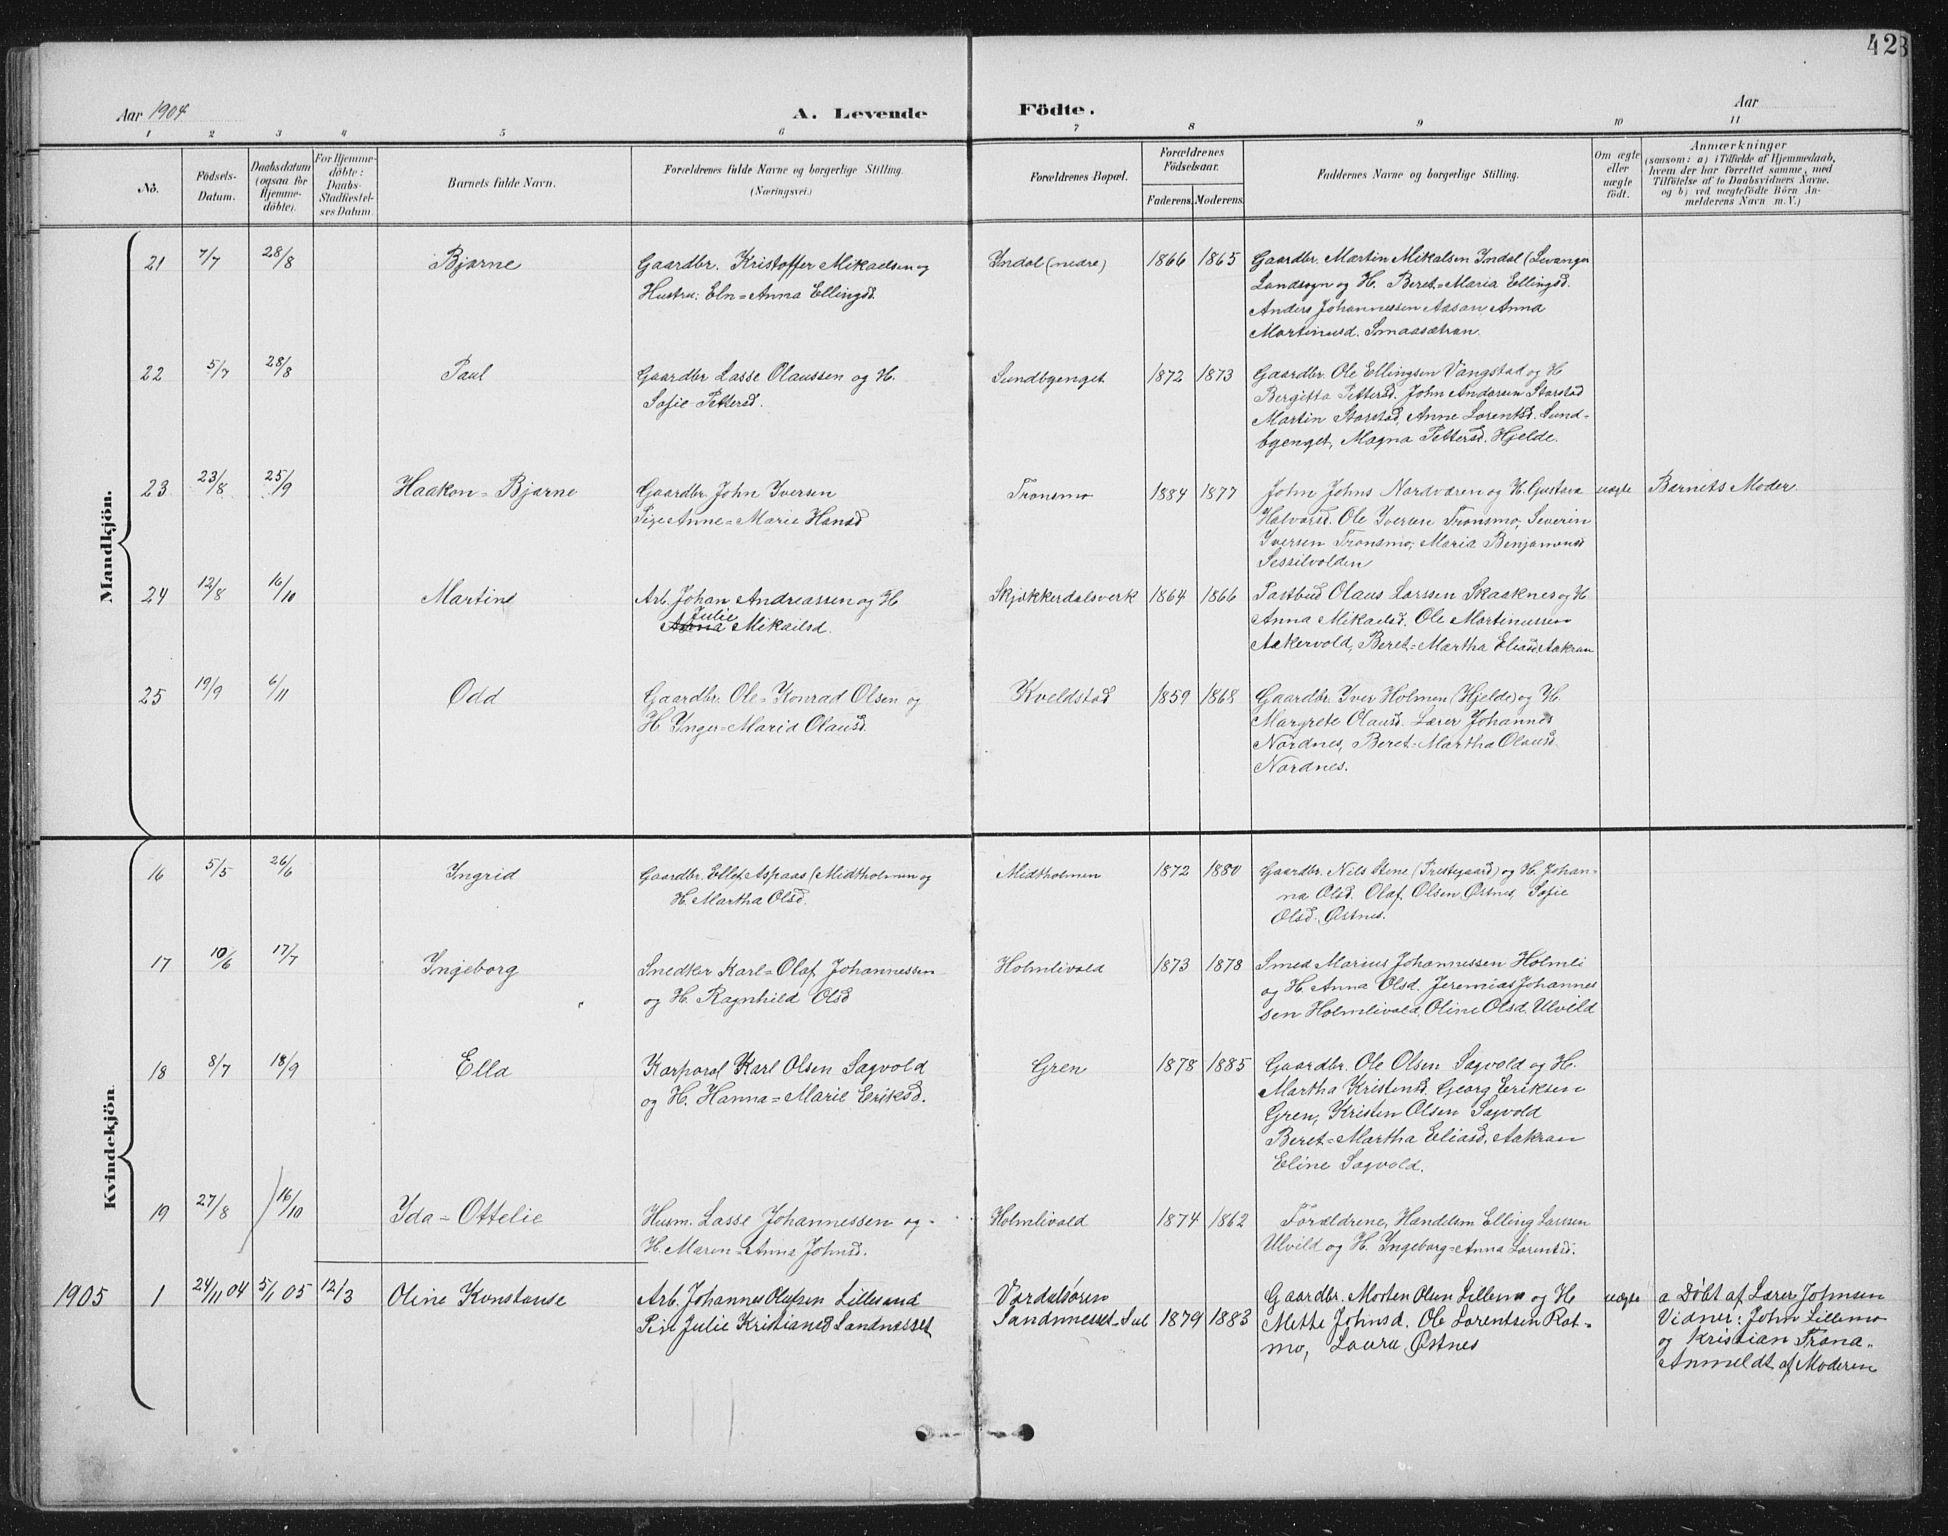 42
Aar 1904
A. Levende Födte.
Aar
1 2 3 4 5 6 7 8 9 10 11
No.
Fødsels-Datum.
Daabsdatum (ogsaa for Hjemme-døbte).
For Hjemme-døbte: Daabs-Stadfæstel-ses Datum.
Barnets fulde Navn.
Forældrenes fulde Navne og borgerlige Stilling.
(Næringsvei.)
Forældrenes Bopæl.
Forældrenes Fødselsaar.
Faderens. Moderens.
Faddernes Navne og borgerlige Stilling.
Om ægte eller uægte født.
Anmærkninger
(saasom: a) i Tilfælde af Hjemmedaab,
hvem der har forrettet samme, med
Tilføielse af to Daabsvidners Navne.
og b) ved uægtefødte Börn An-
melderens Navn m. V.)
Mandkjön.
21 7/7 28/8 Bjarne
Gaardbr. Kristoffer Mikaelsen og
Hustru: Eln=Anna Ellingsd.
Indal (nedre) 1866 1865
Gaardbr. Martin Mikalsen Indal (Levanger
Landsogn og H. Beret=Maria Ellingsd.
Anders Johannessen Aasan Anna
Martinusd. Smaasætran.
22 5/7 28/8 Paul
Gaardbr Lasse Olaussen og H.
Sofie Pettersd.
Sundbyenget 1872 1873
Gaardbr. Ole Ellingsen Vangstad og H
Bergitta Pettersd. John Andersen Storstad
Martin Storstad, Anne Lorentsd. Sund=
byenget, Magna Pettersd. Hjelde.
23 23/8 25/9 Haakon=Bjarne
Gaardbr. John Iversen
Pige Anne=Marie Hansd
Tronsmo 1884 1877
John Johns Nordværen og H. Gustava
Halvorsd. Ole Iversen Tronsmo, Severin
Iversen Tronsmo, Maria Benjaminsd
Sessilvolden
uægte Barnets Moder.
24 12/8 16/10 Martin
Arb. Johan Andreassen og H
Julie
Anna Mikailsd.
Skjækkerdalsverk 1864 1866
Postbud Olaus Larssen Skaaknes og H
Anna Mikailsd. Ole Martinussen
Aakervold, Beret=Martha Eliasd Aakran
25 19/9 6/11 Odd
Gaardbr. Ole=Konrad Olsen og
H. Inger=Marid Olausd.
Kveldstad 1859 1868
Gaardbr. Iver Holmen (Hjelde) og H.
Margrete Olausd. Lærer Johannes
Nordnes, Beret=Martha Olausd.
Nordnes.
Kvindekjön
16 5/5 26/6 Ingrid
Gaardbr. Ellef Aspaas (Midtholmen og
H. Martha Olsd.
Midtholmen 1872 1880
Gaardbr. Nils Stene (Prestegaard) og H. Johan=
na Olsd. Olaf Olsen Østnes, Sofie
Olsd. Østnes.
17 10/6 17/7 Ingeborg
Snedker Karl=Olaf Johannessen
og H. Ragnhild Olsd
Holmlivald 1873 1878
Smed Marius Johannessen Holmli
og H. Anna Olsd. Jeremias Johannes
sen Holmlivald, Oline Olsd. Ulvild
18 8/7 18/9 Ella
Korporal Karl Olsen Sagvold
og H. Hanna=Marie Eriksd.
Gren 1878 1885
Gaardbr. Ole Olsen Sagvold og H.
Martha Kristensd. Georg Eriksen
Gren, Kristen Olsen Sagvold
Beret=Martha Eliasd. Aakran
Eline Sagvold.
19 27/8 16/10 Ida=Ottelie
Husm. Lasse Johannessen og
H. Maren=Anna Johnsd.
Holmlivald 1874 1862
Forældrene, Handelsm Elling Larssen
Ulvild og H. Ingeborg=Anna Lorentsd.
1905 1 24/11 04 5/1 05 12/3 Oline Konstanse
Arb. Johannes Olufsen Lillesand
Pige Julie Kristiansd Sandnesset
Værdalsøren
Sandnesset=Sul 1879 1883
Gaardbr. Morten Olsen Lillemo og H
Mette Johnsd. Ole Lorentsen Rot=
mo, Laura Østnes
uægte
a Døbt af Lærer Johnsen
Vidner: John Lillemo
og Kristian Trana.
Anmeldt af Moderen